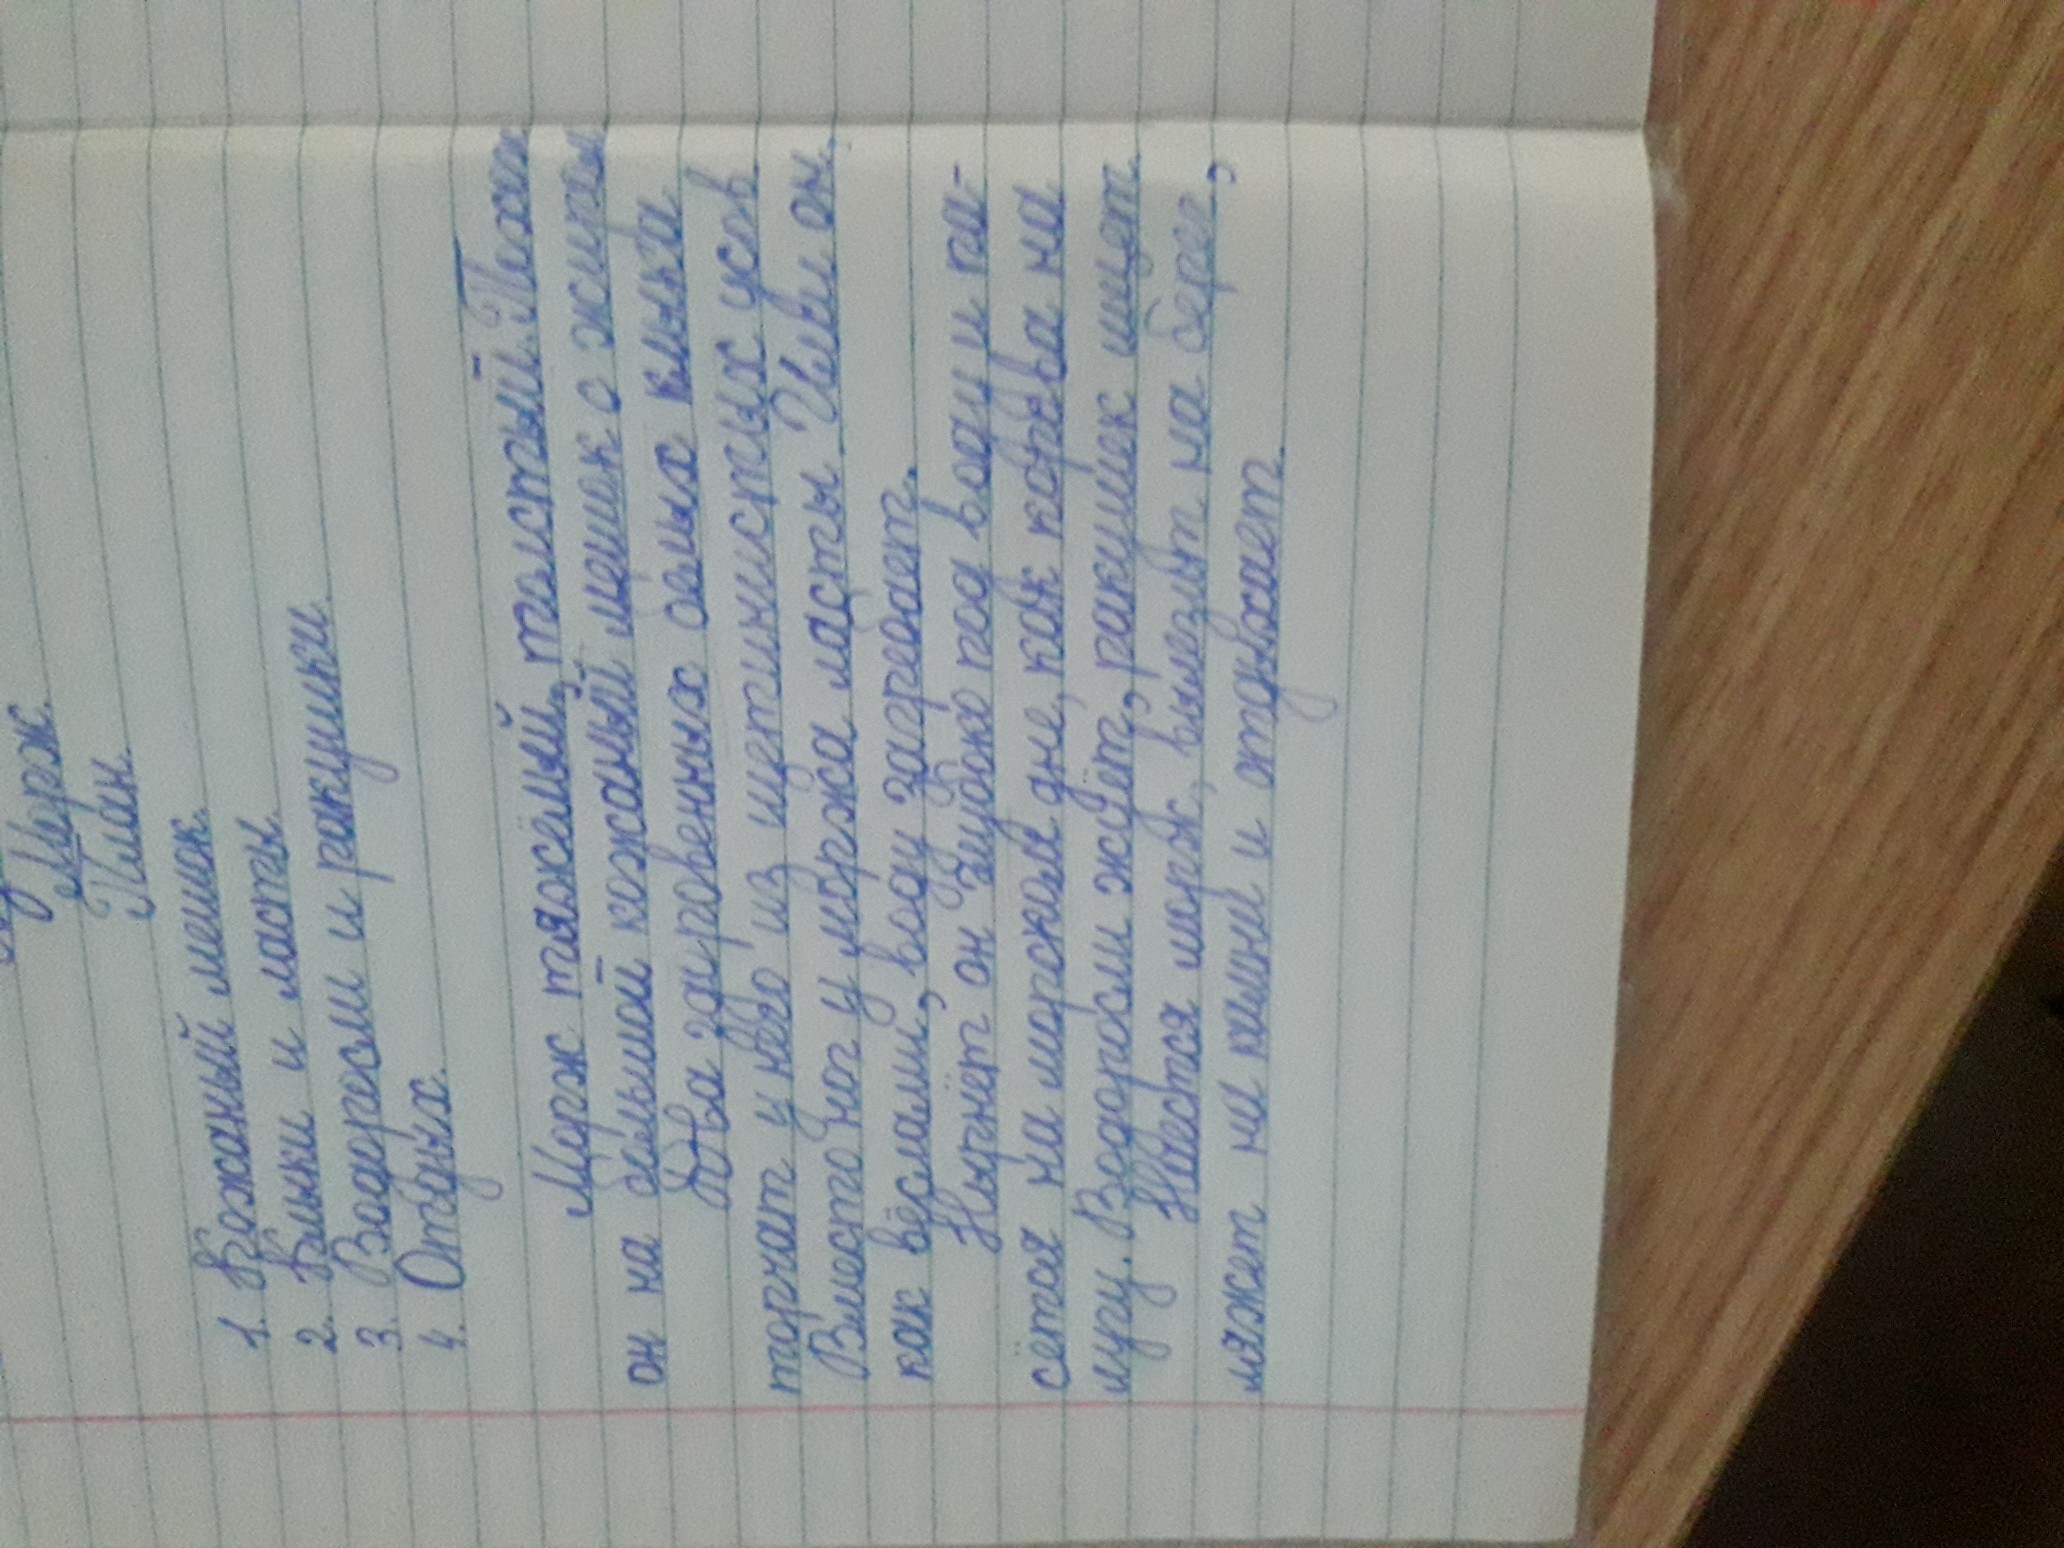 Морж.
План.
1. Кожаный мешок.
2. Клыки и ласты.
3. Водоросли и ракушки.
4. Отдых.
Морж тяжёлый, толстый. Похож
он на большой кожаный мешок с жиром
Два здоровенных белых клыка
торчат у него из щетинистых усов.
Вместо ног у моржа ласты. Ими он,
как вёслами, воду загребает.
Нырнёт он глубоко под воду и па-
сётся на морском дне, как корова на
лугу. Водоросли жуёт, ракушек ищет.
Наестся морж, вылезит на берег,
ляжет на камни и отдыхает.